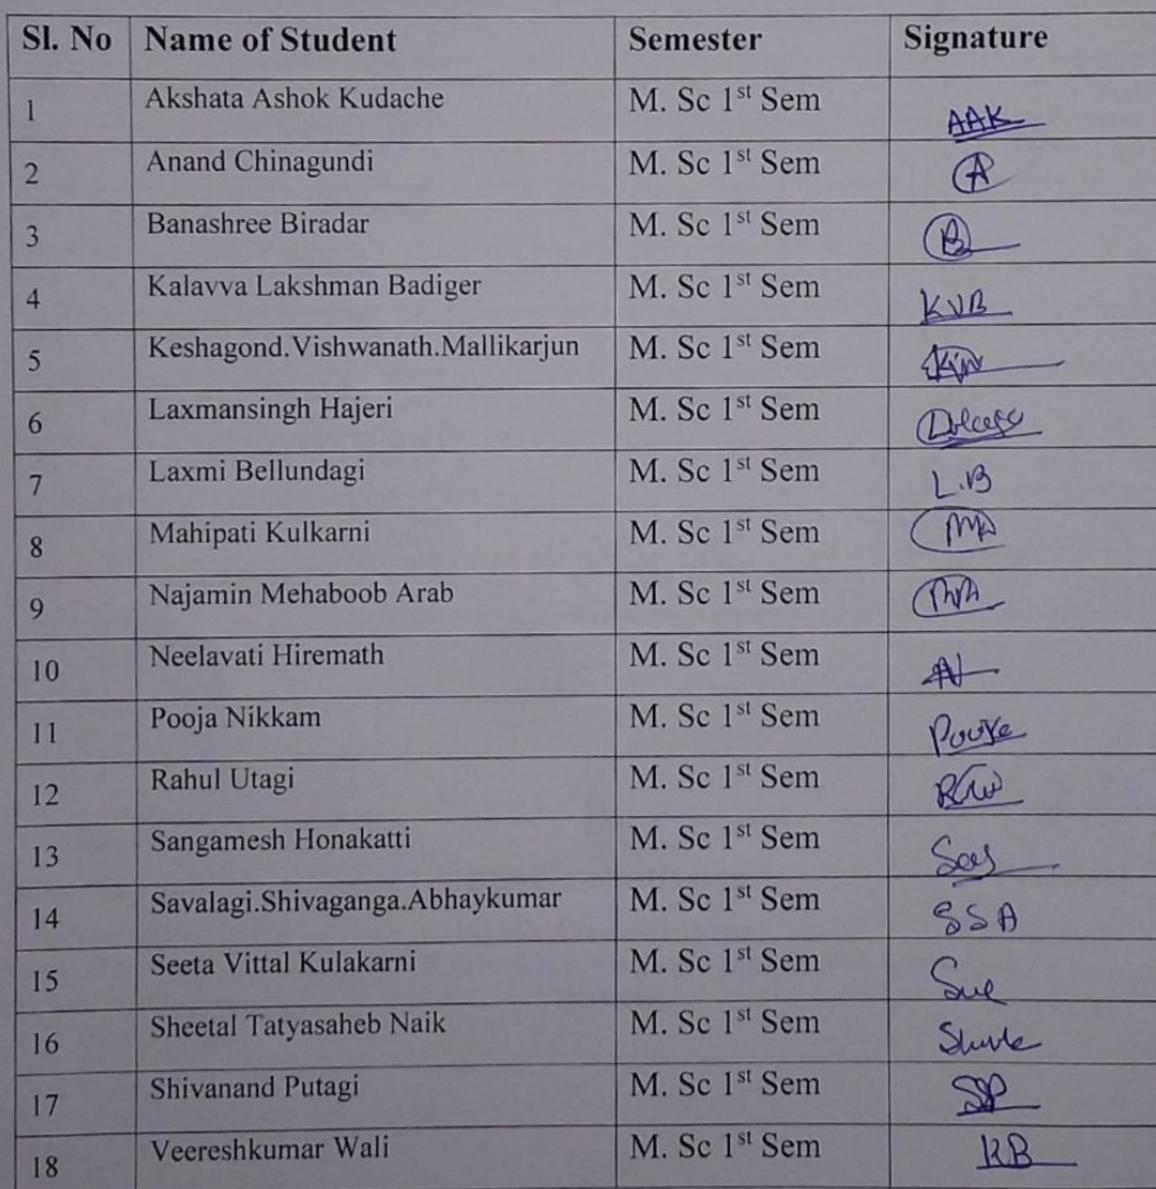 Sl. No Name of Student Semester Signature
1 Akshata Ashok Kudache M. Sc 1st Sem AAK
2 Anand Chinagundi M. Sc 1st Sem A
3 Banashree Biradar M. Sc 1st Sem B
4 Kalavva Lakshman Badiger M. Sc 1st Sem KVB
5 Keshagond.Vishwanath.Mallikarjun M. Sc 1st Sem
6 Laxmansingh Hajeri M. Sc 1st Sem
7 Laxmi Bellundagi M. Sc 1st Sem L.B
8 Mahipati Kulkarni M. Sc 1st Sem
9 Najamin Mehaboob Arab M. Sc 1st Sem
10 Neelavati Hiremath M. Sc 1st Sem
11 Pooja Nikkam M. Sc 1st Sem
12 Rahul Utagi M. Sc 1st Sem
13 Sangamesh Honakatti M. Sc 1st Sem
14 Savalagi.Shivaganga.Abhaykumar M. Sc 1st Sem SSA
15 Seeta Vittal Kulakarni M. Sc 1st Sem
16 Sheetal Tatyasaheb Naik M. Sc 1st Sem
17 Shivanand Putagi M. Sc 1st Sem SP
18 Veereshkumar Wali M. Sc 1st Sem